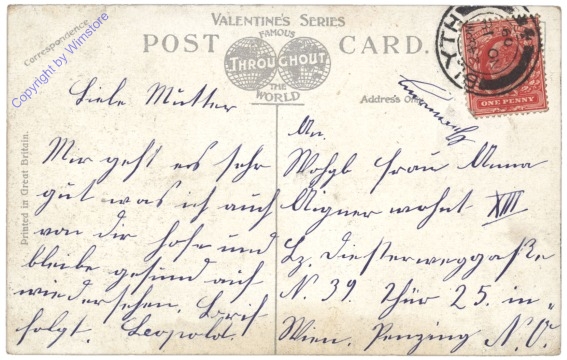 VALENTINE'S SERIES
POST CARD.
FAMOUS
THROUGHOUT
THE
WORLD
Correspondence
Copyright by Wimstore
Address Only
Printed in Great Britain.
BLYTH
ONE PENNY
Liebe Mutter
Mir geht es sehr
gut was ich auch
von dir hofe und
bleibe gesund auf
wiedersehen. Brif
folgt. Leopold.
An.
Wohgb Frau Anna
Aigner wohnt XIII
Lz. Diesterweggaße
N. 39. Thür 25. in
Wien. Penzing N.Ö.